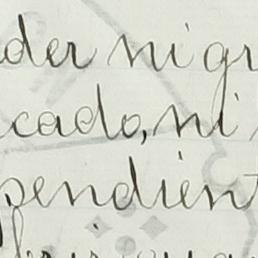 der ni gr
cado, ni
pendient